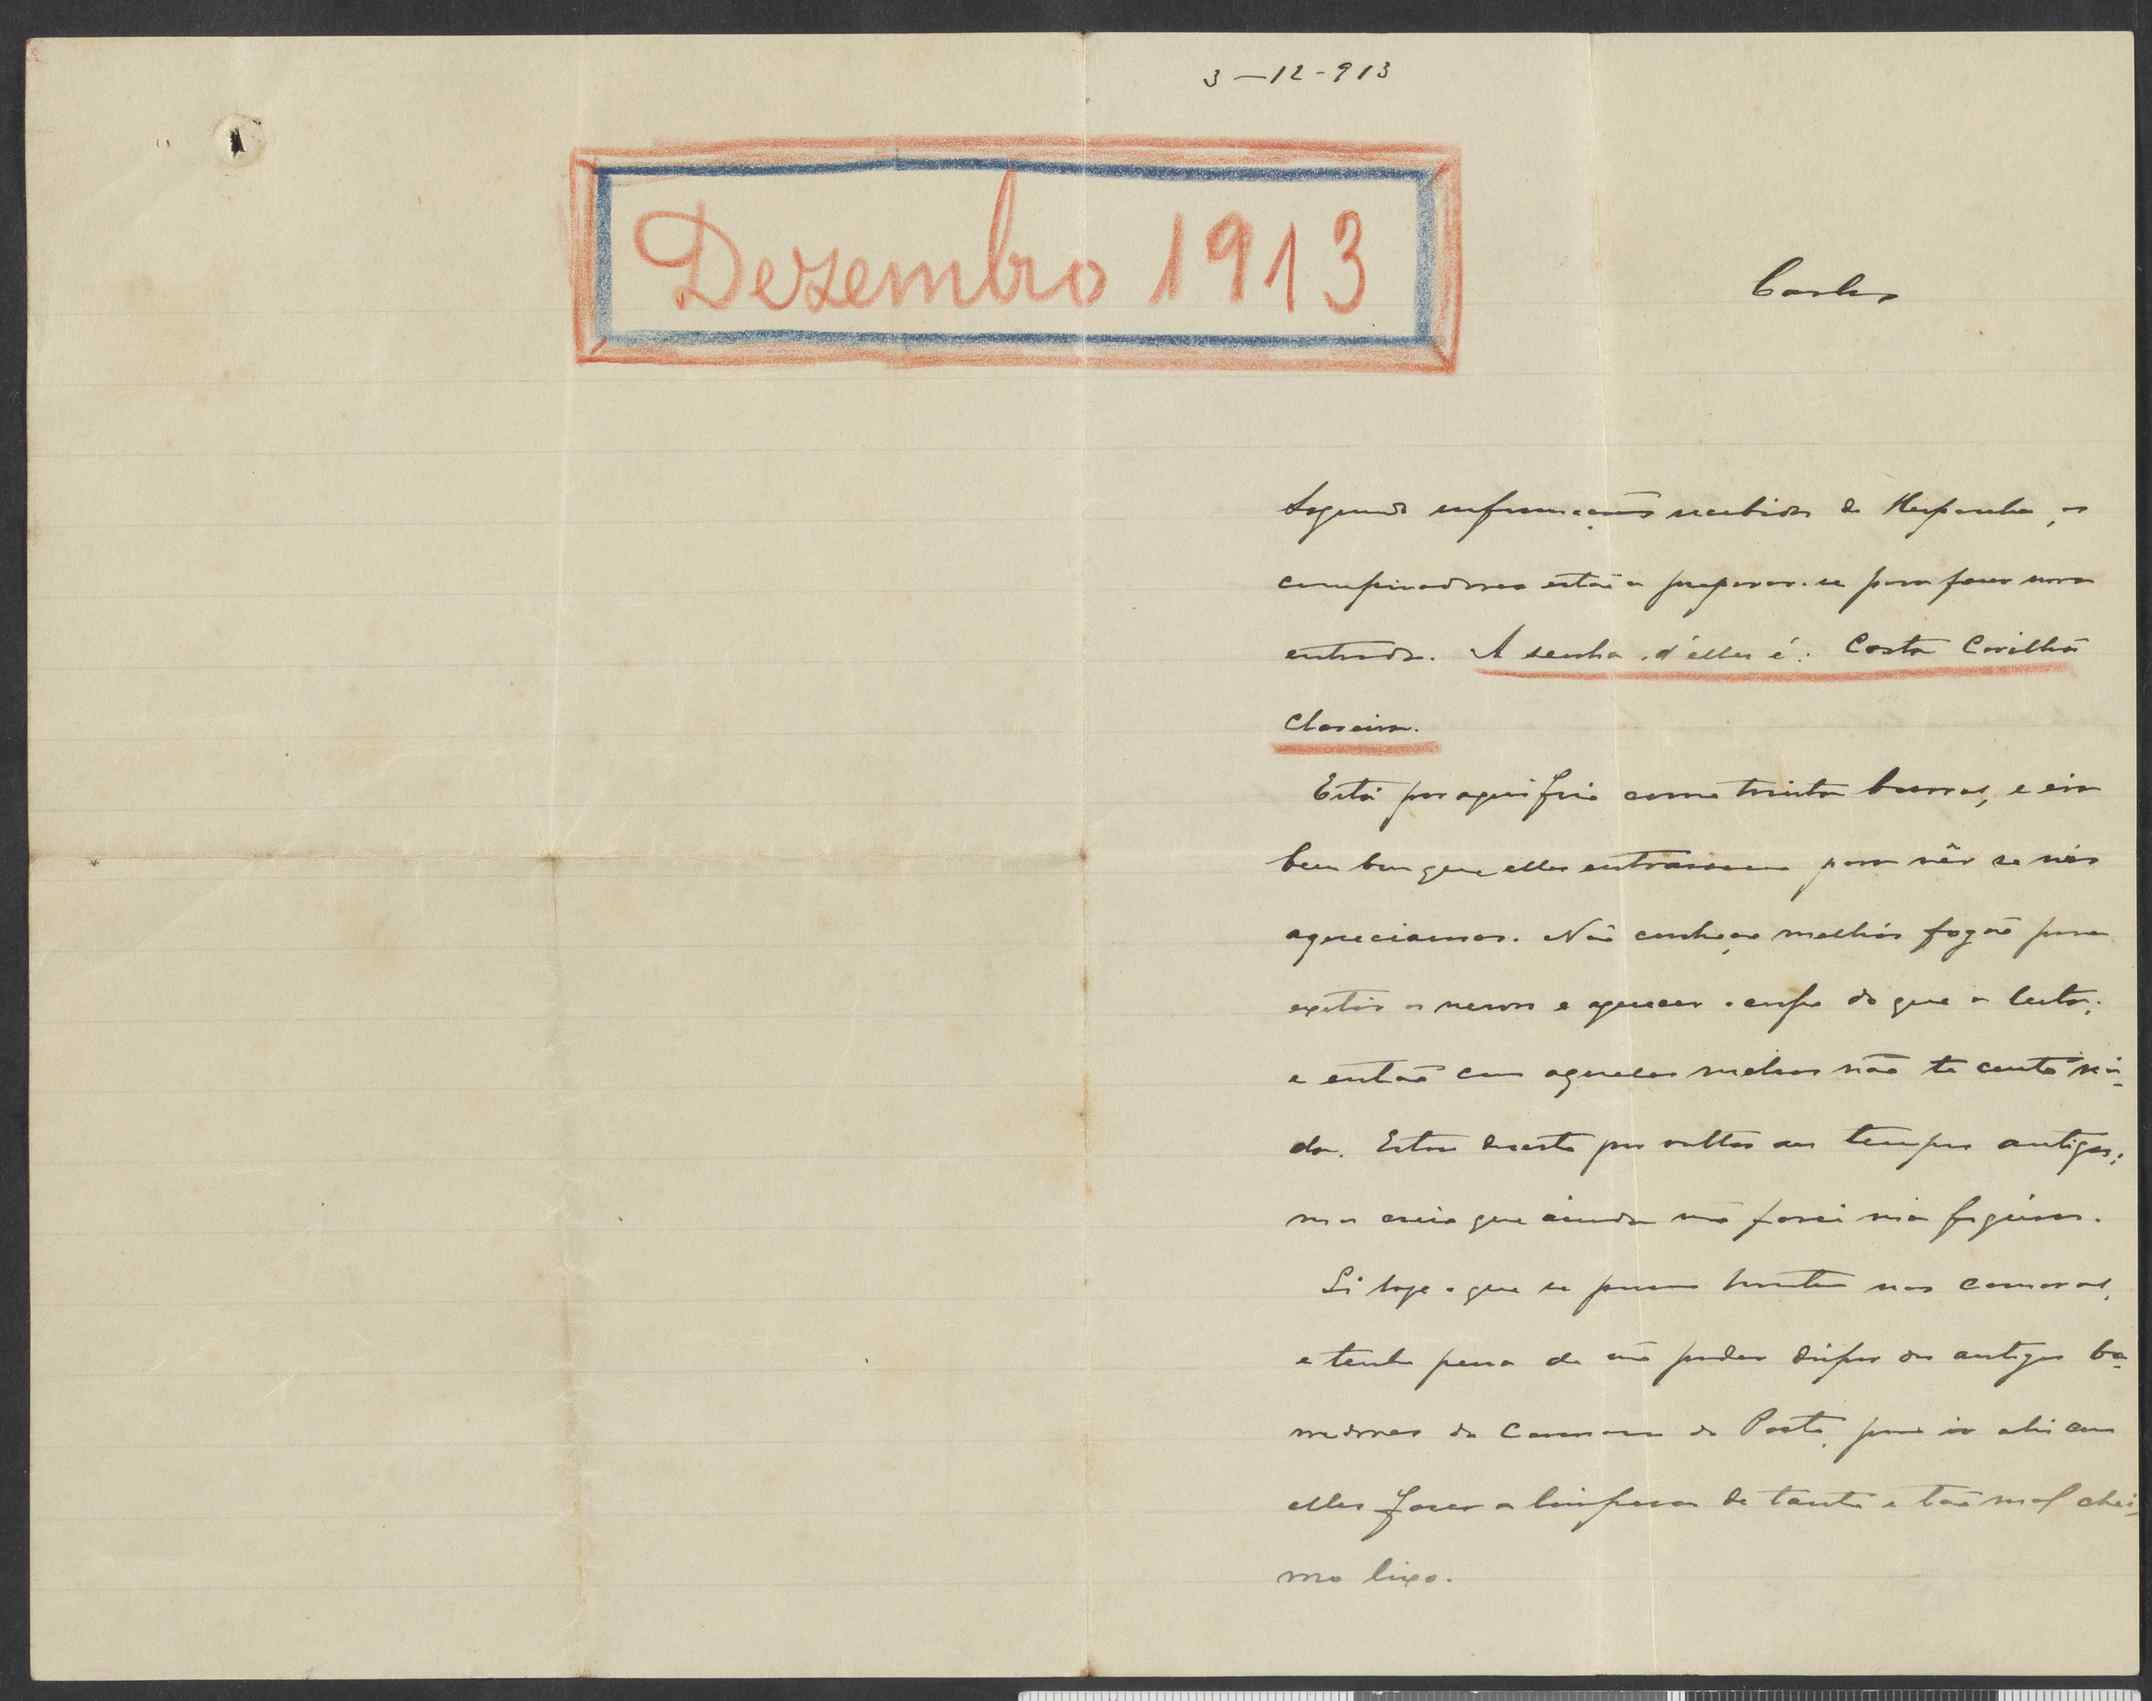 3-12-913
Dezembro 1913
Carlos
Segundo informações recebidas de Hespanha, os
conspiradores estão a preparar-se para fazer nova
entrada. A senha d'elles é: Costa Covilhã
Está por aqui frio como trinta burros, e era
bem bom que elles entrassem para vêr se nós
aqueciamos. Não conheço melhór fogão para
os nervos e aquecer o corpo do que a lucta;
e então com aqueles melros não te conto ná-
da. Estou deserto por voltar aos tempos antigos;
mas creio que ainda não farei má figura.
Li hoje o que se passou hontem nas camaras,
e tenho pena de não poder dispor dos antigos va-
redores da Camara do Porto, para ir ahi com
elles fazer a limpesa de tanto e tão mal chei-
roso lixo.